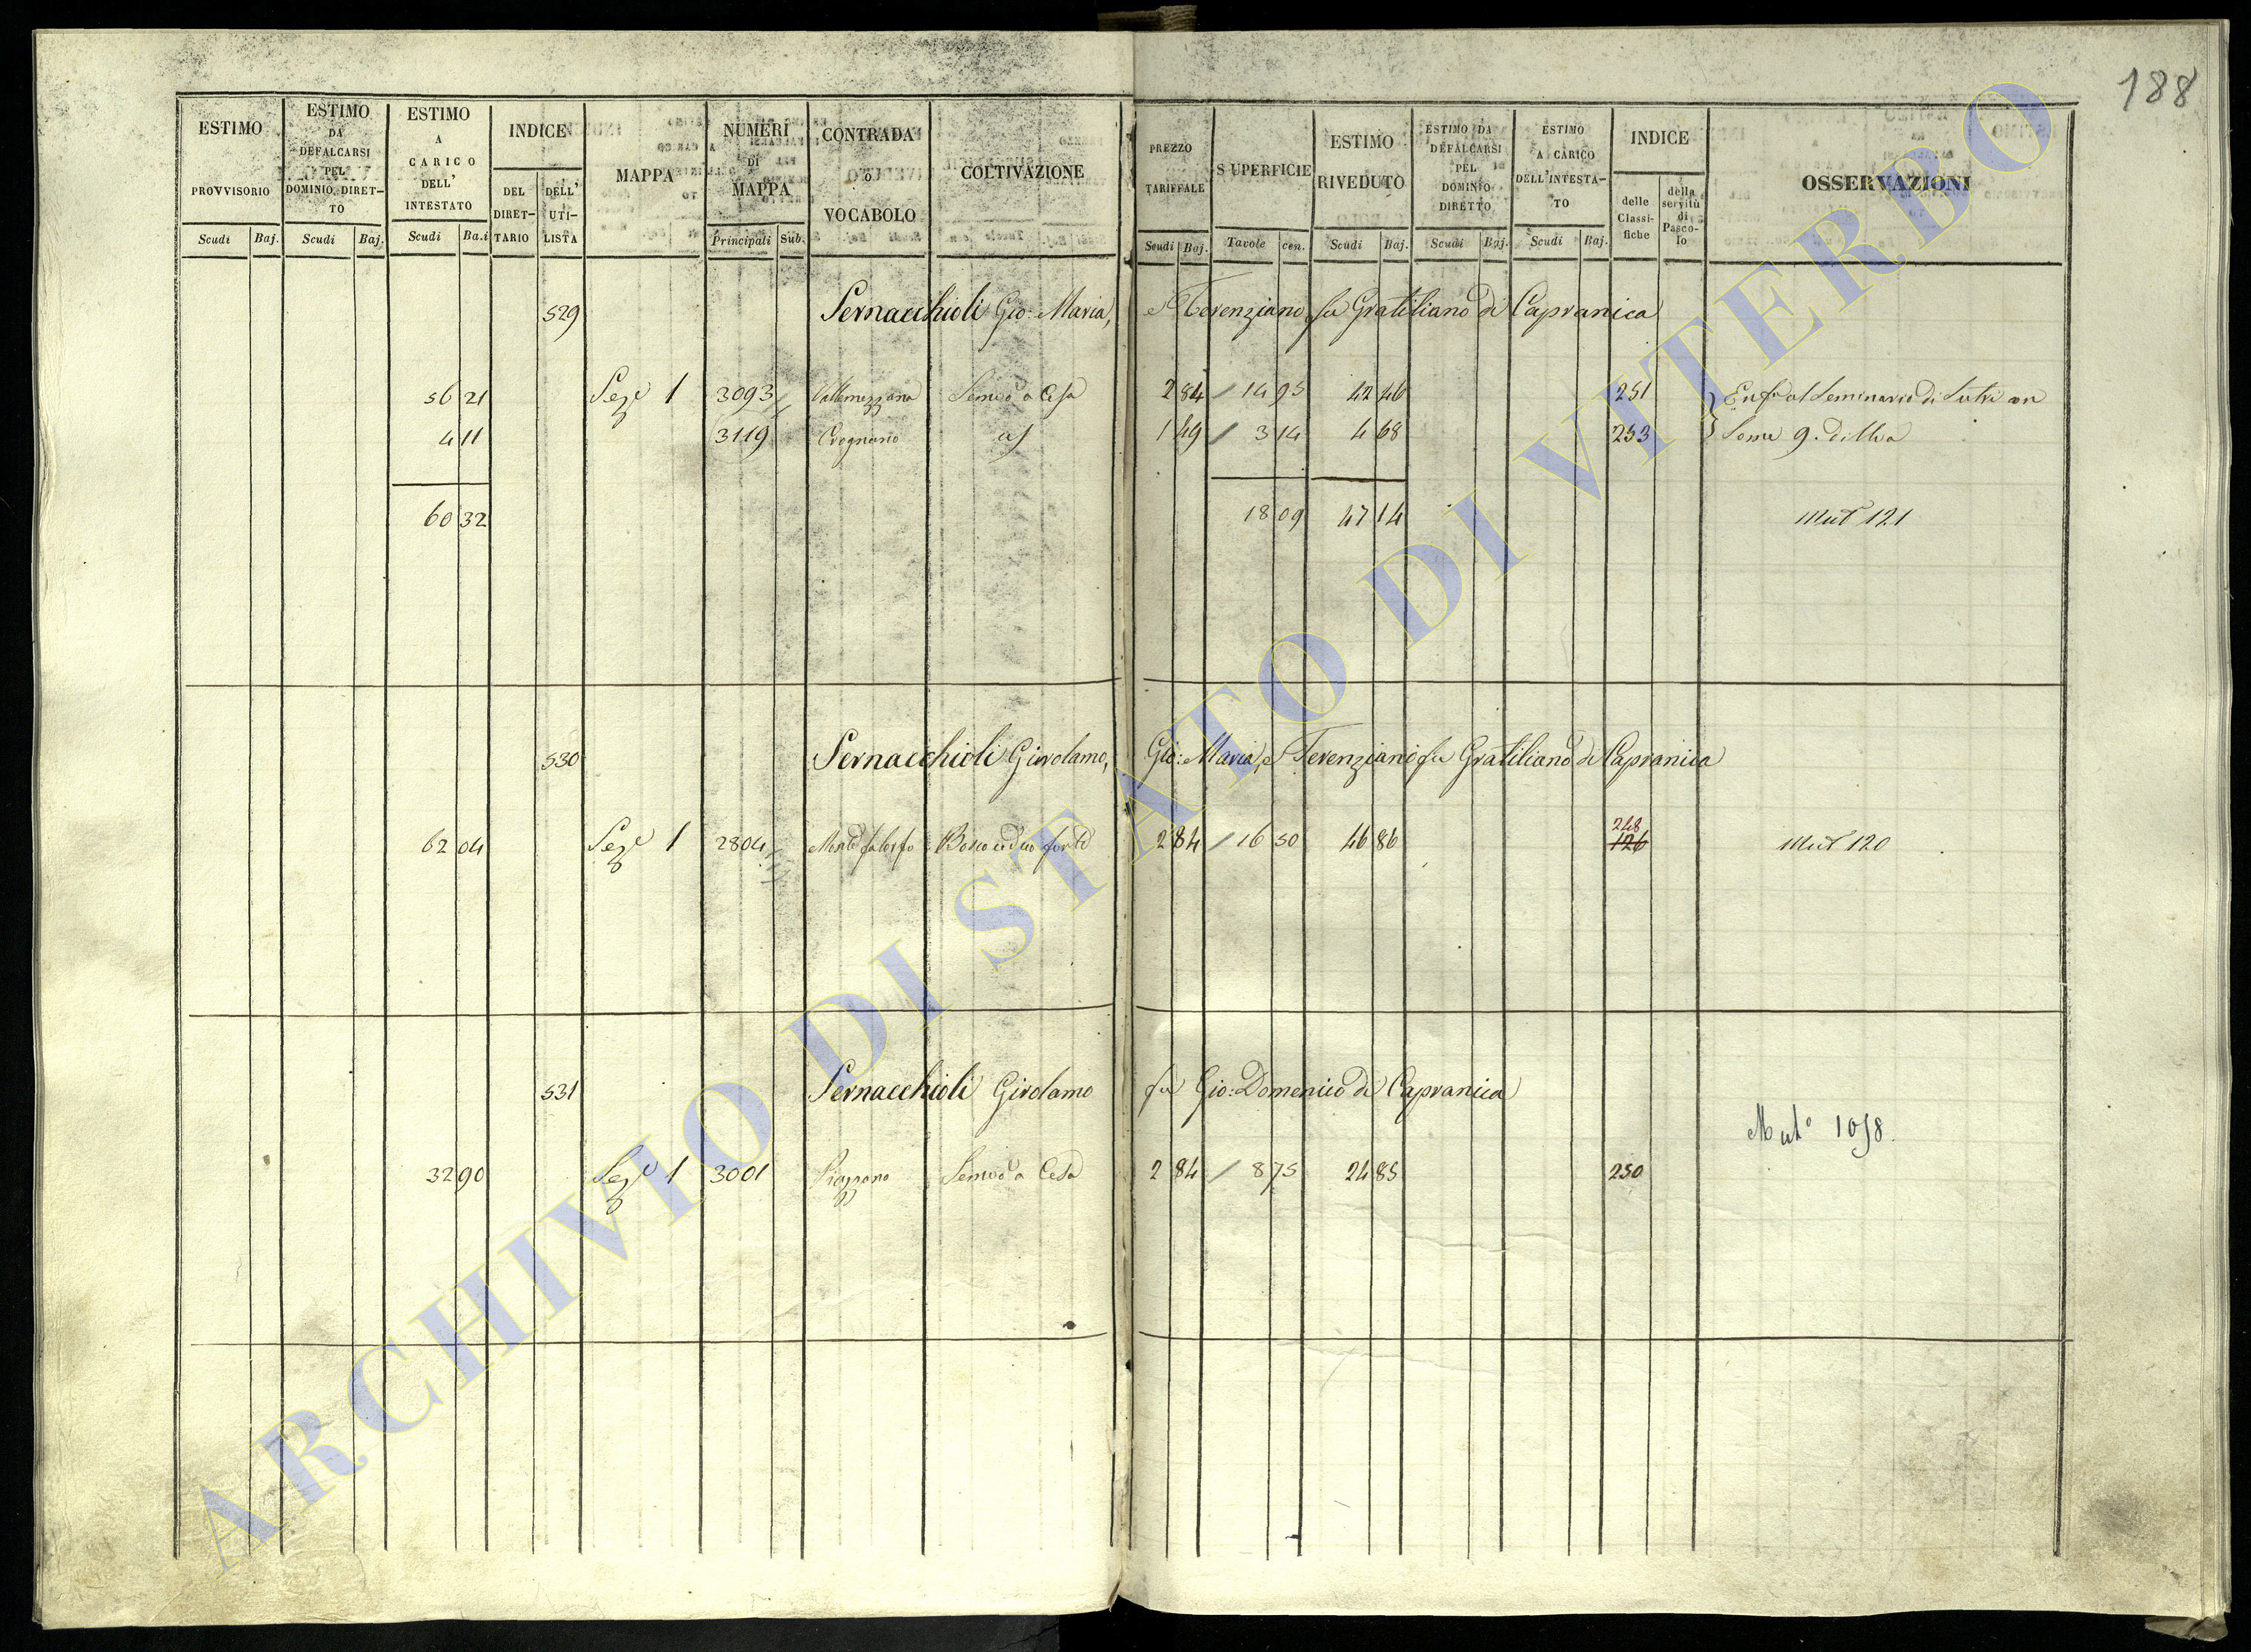 188
ESTIMO PROVVISORIO Scudi Baj.
ESTIMO DA DEFALCARSI PEL DOMINIO DIRET- TO Scudi Baj.
ESTIMO A CARICO DELL' INTESTATO Scudi Ba.i
INDICE DEL DIRET- TARIO DELL' UTI- LISTA
MAPPA
NUMERI DI MAPPA Principali Sub.
CONTRADA o VOCABOLO
COLTIVAZIONE
PREZZO TARIFFALE Scudi Baj.
SUPERFICIE Tavole cen.
ESTIMO RIVEDUTO Scudi Baj.
ESTIMO DA DEFALCARSI PEL DOMINIO DIRETTO Scudi Baj.
ESTIMO A CARICO DELL'INTESTA- TO Scudi Baj.
INDICE delle Classi- fiche della servitù di Pasco- lo
OSSERVAZIONI
529 Sernacchioli Gio: Maria, e Terenziano fu Gratiliano di Capranica
56 21 Sez.e 1 3093 Vallemezzana Semvo a Cesa 2 84 / 14 95 42 46 251 Enf. al Seminario di Sutri
4 11 3119 Crognario a) 1 49 / 3 14 4 68 253 Some 9. di
60 32 18 09 47 14 Mut 121
530 Sernacchioli Girolamo, Gio: Maria, e Terenziano fu Gratiliano di Capranica
62 04 Sez.e 1 2804 Bosco ceduo forte 2 84 / 16 50 46 86 248 126 Mut 120
531 Sernacchioli Girolamo fu Gio: Domenico di Capranica
Mut.o 1058.
32 90 Sez.e 1 3001 Semvo a Cesa 2 84 / 8 75 24 85 250
ARCHIVIO DI STATO DI VITERBO